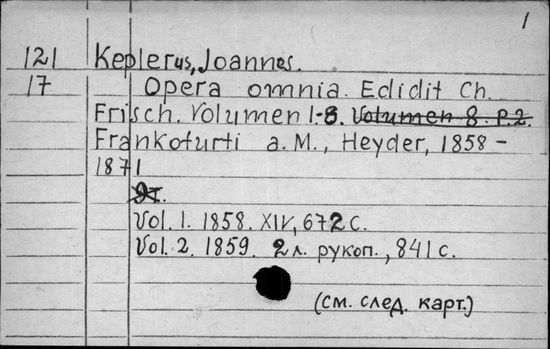 1
121 Keplerus, Joannes.
17 Opera omnia. Edidit Ch.
Frisch. Volumen 1-8. Volumen 8. P.2.
Frankofurti a. M., Heyder, 1858-
1871
Vol. 1. 1858. XIV, 672 с.
Vol. 2. 1859. 2 л. рукоп., 841 с.
(см. след. карт.)